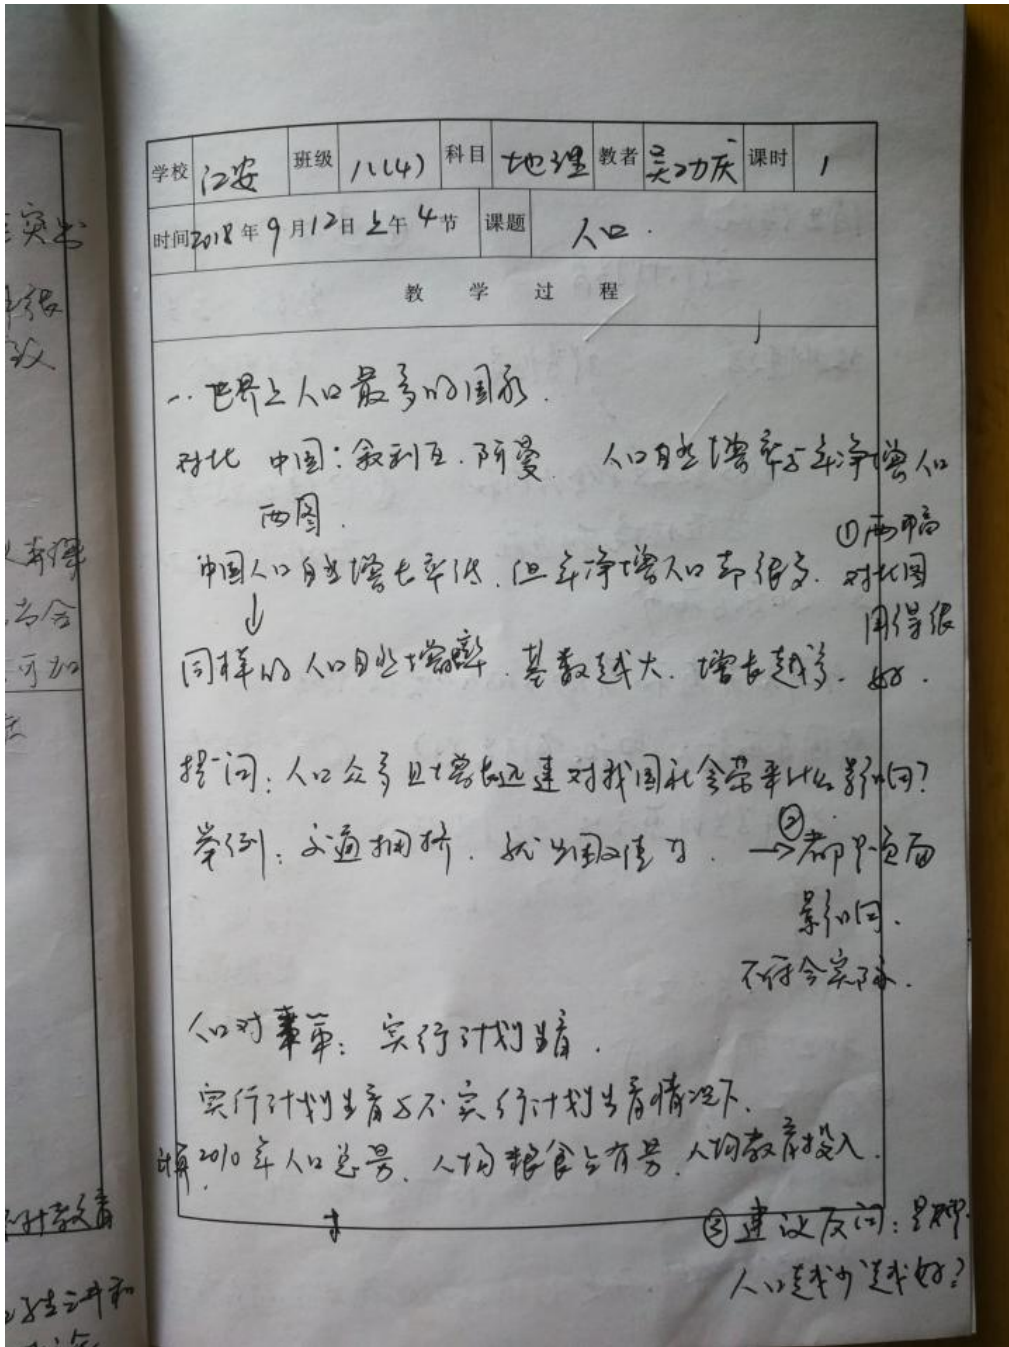 学校 江安 班级 八(4) 科目 地理 教者 吴功庆 课时 1
时间 2018年9月12日上午4节 课题 人口.
教学过程
一.世界上人口最多的国家.
对比 中国:叙利亚.阿曼 人口自然增率与年净增人口
两图.
中国人口自然增长率低.但年净增人口却很多.
↓
同样的人口自然增率.基数越大.增长越多.
①两幅
对比图
用得很
好.
提问:人口众多且增长迅速对我国社会带来什么影响?
举例:交通拥挤.就业困难 . ②→都是负面
影响.
不符合实际.
人口对策:实行计划生育.
实行计划生育与不实行计划生育情况下.
计算2010年人口总量.人均粮食占有量.人均教育投入.
③建议反问:是不是
人口越少越好?